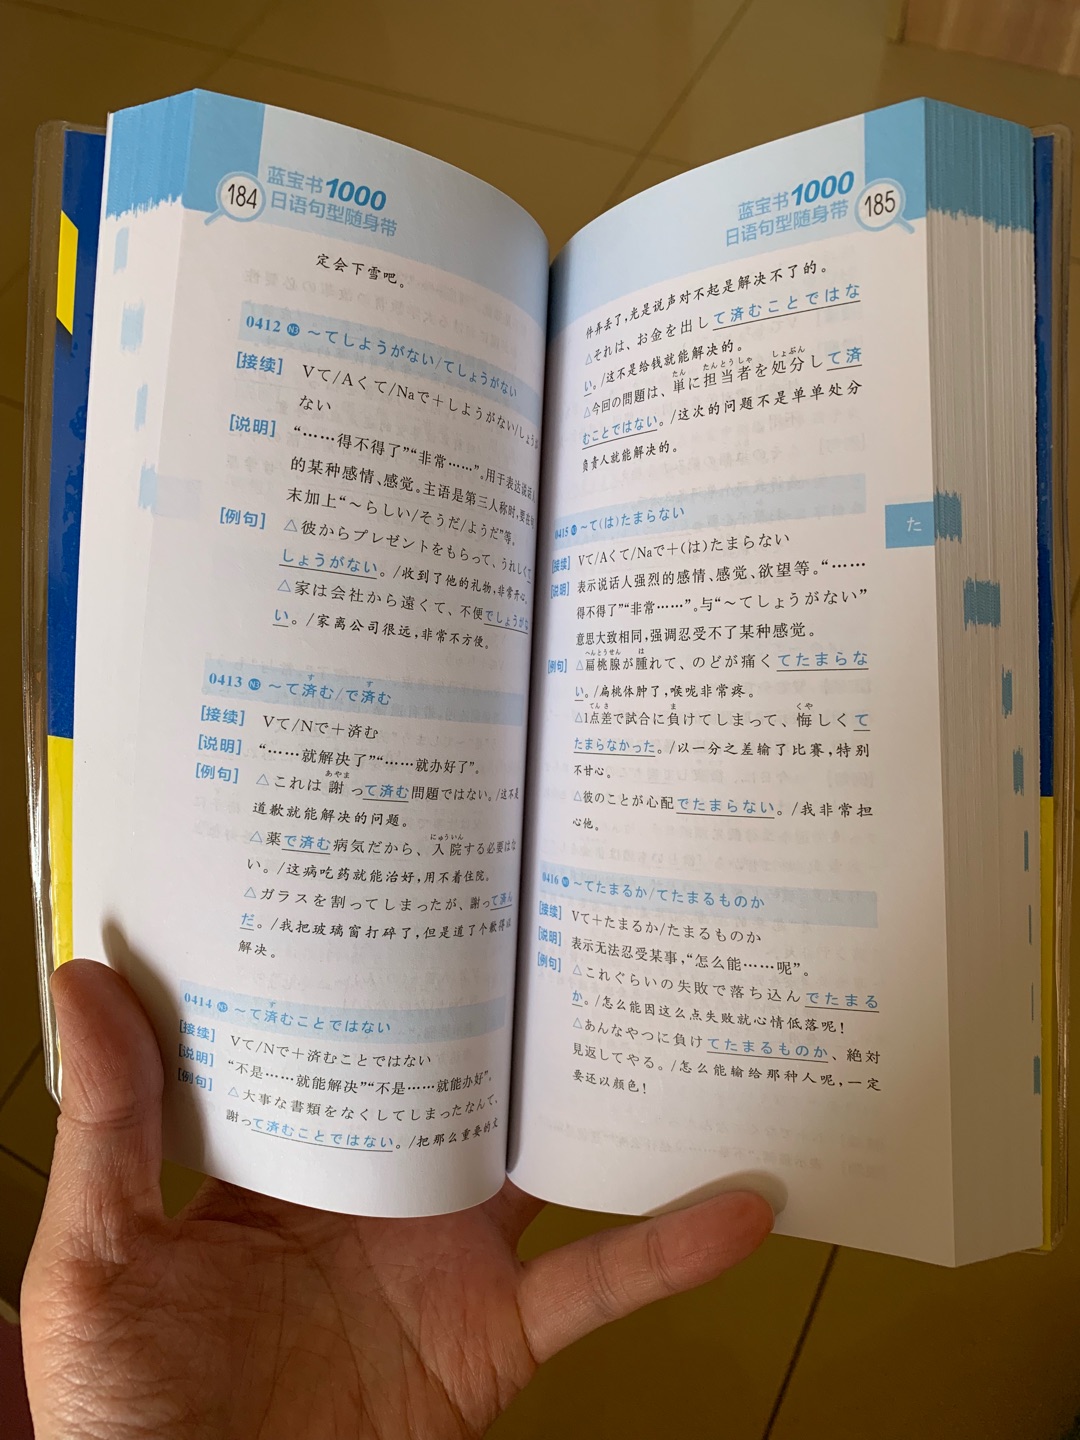 184
蓝宝书1000
日语句型随身带
定会下雪吧。
0412 N3 ～てしようがない/てしょうがない
[接续] Vて/Aくて/Naで＋しようがない/しょうが
ない
[说明] “……得不得了”“非常……”。用于表达说话
的某种感情、感觉。主语是第三人称时，要在句
末加上“～らしい/そうだ/ようだ”等。
[例句] △彼からプレゼントをもらって、うれしくて
しょうがない。/收到了他的礼物，非常开心。
△家は会社から遠くて、不便でしょうがな
い。/家离公司很远，非常不方便。
0413 N3 ～て済む/で済む
[接续] Vて/Nで＋済む
[说明] “……就解决了”“……就办好了”。
[例句] △これは謝って済む問題ではない。/这不是
道歉就能解决的问题。
△薬で済む病気だから、入院する必要はな
い。/这病吃药就能治好，用不着住院。
△ガラスを割ってしまったが、謝って済ん
だ。/我把玻璃窗打碎了，但是道了个歉得以
解决。
0414 N3 ～て済むことではない
[接续] Vて/Nで＋済むことではない
[说明] “不是……就能解决”“不是……就能办好”。
[例句] △大事な書類をなくしてしまったなんて、
謝って済むことではない。/把那么重要的文
185
蓝宝书1000
日语句型随身带
件弄丢了，光是说声对不起是解决不了的。
△それは、お金を出して済むことではな
い。/这不是给钱就能解决的。
△今回の問題は、単に担当者を処分して済
むことではない。/这次的问题不是单单处分
负责人就能解决的。
た
0415 ～て(は)たまらない
[接续] Vて/Aくて/Naで＋(は)たまらない
[说明] 表示说话人强烈的感情、感觉、欲望等。“……
得不得了”“非常……”。与“～てしょうがない”
意思大致相同，强调忍受不了某种感觉。
[例句] △扁桃腺が腫れて、のどが痛くてたまらな
い。/扁桃体肿了，喉咙非常疼。
△1点差で試合に負けてしまって、悔しくて
たまらなかった。/以一分之差输了比赛，特别
不甘心。
△彼のことが心配でたまらない。/我非常担
心他。
0416 ～てたまるか/てたまるものか
[接续] Vて＋たまるか/たまるものか
[说明] 表示无法忍受某事，“怎么能……呢”。
[例句] △これぐらいの失敗で落ち込んでたまる
か。/怎么能因这么点失败就心情低落呢！
△あんなやつに負けてたまるものか、絶対
見返してやる。/怎么能输给那种人呢，一定
要还以颜色！